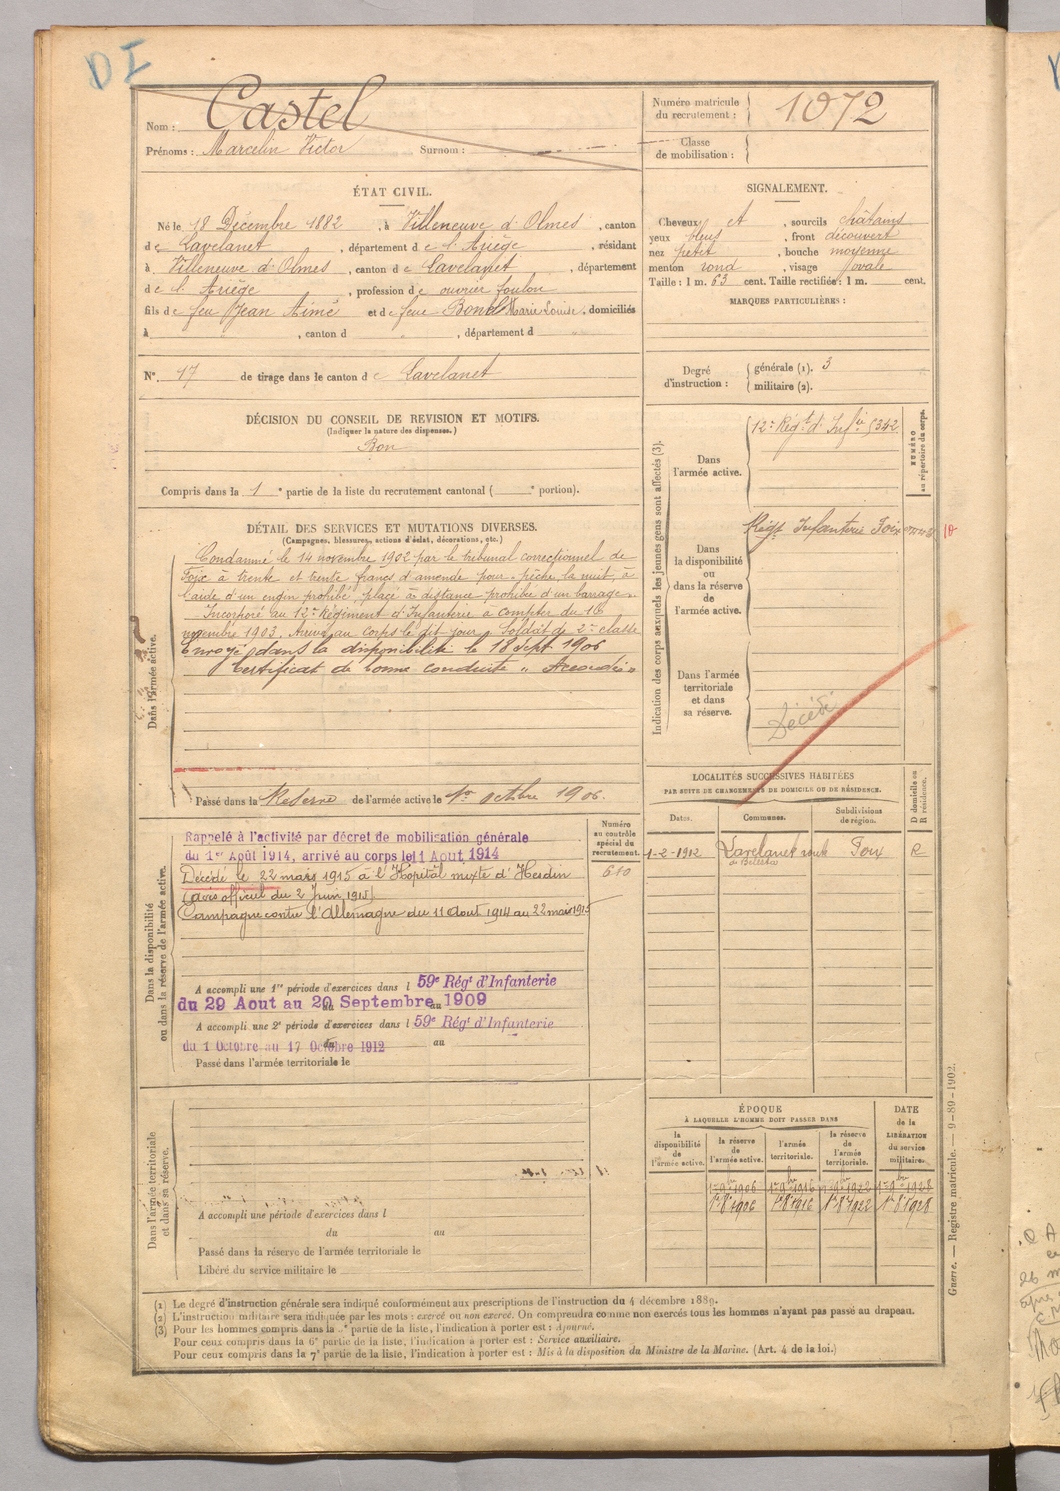 DI
Nom : Castel
Prénoms : Marcelin Victor Surnom :
Numéro matricule du recrutement : 1072
Classe de mobilisation :
ÉTAT CIVIL.
Né le 18 Décembre 1882, à Villeneuve d'Olmes, canton
de Lavelanet, département de l'Ariège, résidant
à Villeneuve d'Olmes, canton de Lavelanet, département
de l'Ariège, profession de ouvrier foulon
fils de feu Jean Aimé et de feue Marie Louise, domiciliés
à , canton d , département d
N° 17 de tirage dans le canton de Lavelanet
SIGNALEMENT.
Cheveux et , sourcils châtains
yeux bleus , front découvert
nez petit , bouche moyenne
menton rond , visage ovale
Taille : 1 m. 63 cent. Taille rectifiée : 1 m. cent.
MARQUES PARTICULIÈRES :
Degré d'instruction :
générale (1). 3
militaire (2).
DÉCISION DU CONSEIL DE REVISION ET MOTIFS.
(Indiquer la nature des dispenses.)
Bon
Compris dans la 1e partie de la liste du recrutement cantonal ( e portion).
DÉTAIL DES SERVICES ET MUTATIONS DIVERSES.
(Campagnes, blessures, actions d'éclat, décorations, etc.)
Dans l'armée active.
Condamné le 14 novembre 1902 par le tribunal correctionnel de
Foix à trente et trente francs d'amende pour "pêche, la nuit, à
l'aide d'un engin prohibé, placé à distance prohibée d'un barrage".
Incorporé au 12e Régiment d'Infanterie à compter du 16
novembre 1903. Arrivé au corps le dit jour, Soldat de 2e classe
Envoyé dans la disponibilité le 18 Sept 1906
Certificat de bonne conduite "Accordé"
Passé dans la Réserve de l'armée active le 1er octobre 1906.
Indication des corps auxquels les jeunes gens sont affectés (3).
NUMÉRO au répertoire du corps.
Dans l'armée active.
12e Régt d'Infie 5342
Dans la disponibilité ou dans la réserve de l'armée active.
Régt Infanterie Foix
Dans l'armée territoriale et dans sa réserve.
Décédé
LOCALITÉS SUCCESSIVES HABITÉES
PAR SUITE DE CHANGEMENTS DE DOMICILE OU DE RÉSIDENCE.
Dates.
Communes.
Subdivisions de région.
D domicile ou R résidence.
1-2-1912 Lavelanet route de Bélesta Foix R
Dans la disponibilité ou dans la réserve de l'armée active.
Numéro au contrôle spécial du recrutement.
680
Rappelé à l'activité par décret de mobilisation générale
du 1er Août 1914, arrivé au corps le 11 Aout 1914
Décédé le 22 mars 1915 à l'Hôpital mixte d'Hesdin
(avis officiel du 2 Juin 1915)
Campagne contre l'Allemagne du 11 Aout 1914 au 22 mars 1915
A accompli une 1re période d'exercices dans l 59e Régt d'Infanterie
du 29 Aout au 20 Septembre au 1909
A accompli une 2e période d'exercices dans l 59e Régt d'Infanterie
du 1 Octobre au 17 Octobre 1912 au
Passé dans l'armée territoriale le
Dans l'armée territoriale et dans sa réserve.
A accompli une période d'exercices dans l
du au
Passé dans la réserve de l'armée territoriale le
Libéré du service militaire le
ÉPOQUE
À LAQUELLE L'HOMME DOIT PASSER DANS
DATE de la LIBÉRATION du service militaire.
la disponibilité de l'armée active.
la réserve de l'armée active.
l'armée territoriale.
la réserve de l'armée territoriale.
1er 9bre 1906 1er 9bre 1916 1er 9bre 1922 1er 9bre 1928
1er 8bre 1906 1er 8bre 1916 1er 8bre 1922 1er 8bre 1928
Guerre. — Registre matricule. — 9-89-1902.
(1) Le degré d'instruction générale sera indiqué conformément aux prescriptions de l'instruction du 4 décembre 1889.
(2) L'instruction militaire sera indiquée par les mots : exercé ou non exercé. On comprendra comme non exercés tous les hommes n'ayant pas passé au drapeau.
(3) Pour les hommes compris dans la partie de la liste, l'indication à porter est : Ajourné.
Pour ceux compris dans la 6e partie de la liste, l'indication à porter est : Service auxiliaire.
Pour ceux compris dans la 7e partie de la liste, l'indication à porter est : Mis à la disposition du Ministre de la Marine. (Art. 4 de la loi.)